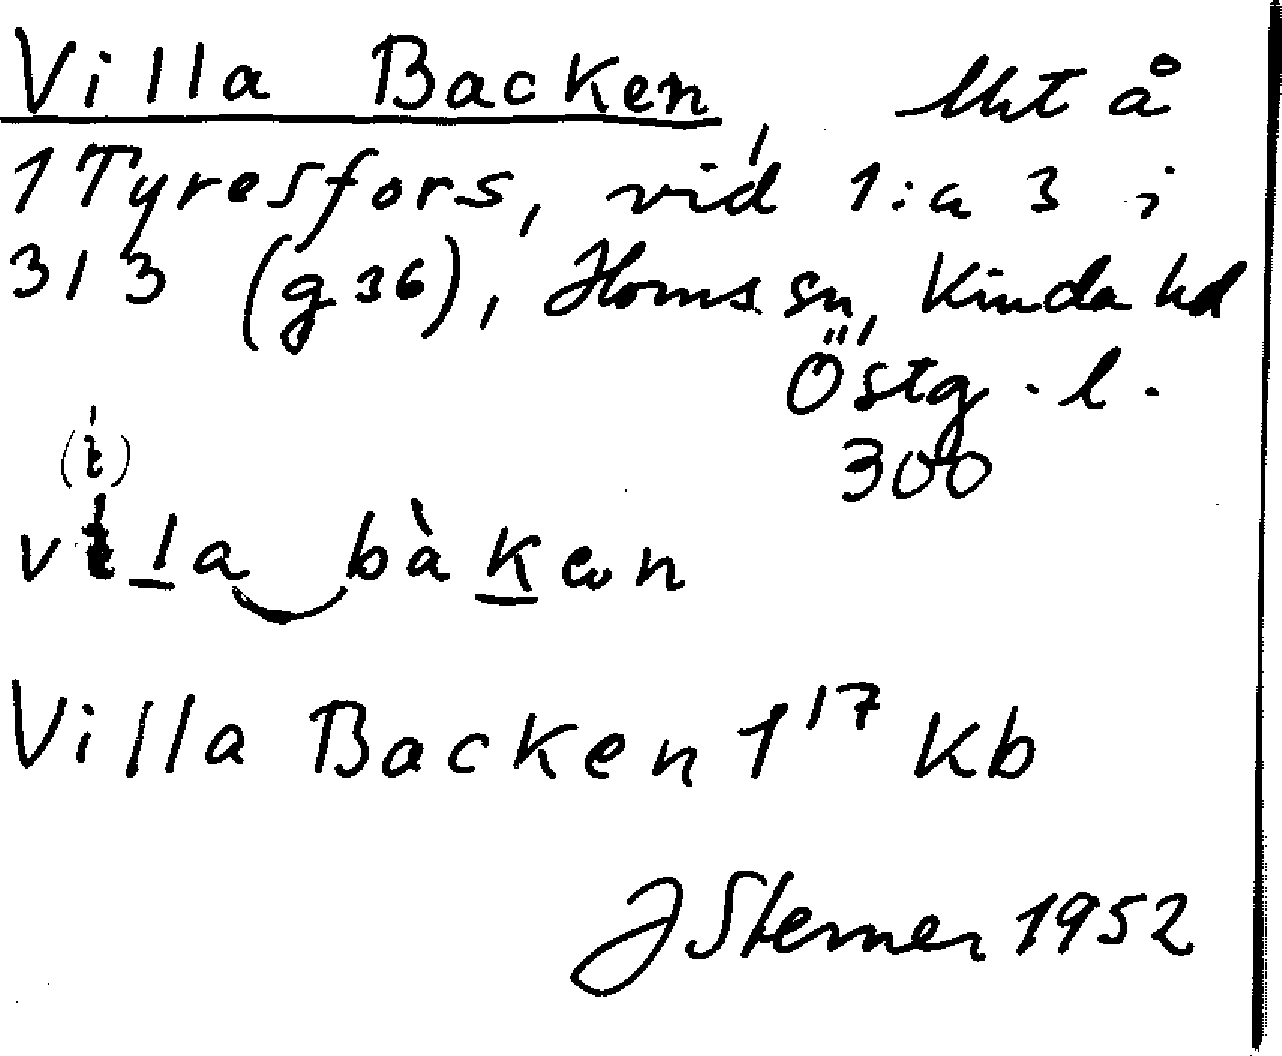 Villa Backen, Mt å
1 Tyresfors, vid 1:a 3 i
313 (g 36), Horns sn, Kinda hd
Östg. l.
300
vila bàken
Villa Backen 1 17 Kb
J Sterner 1952